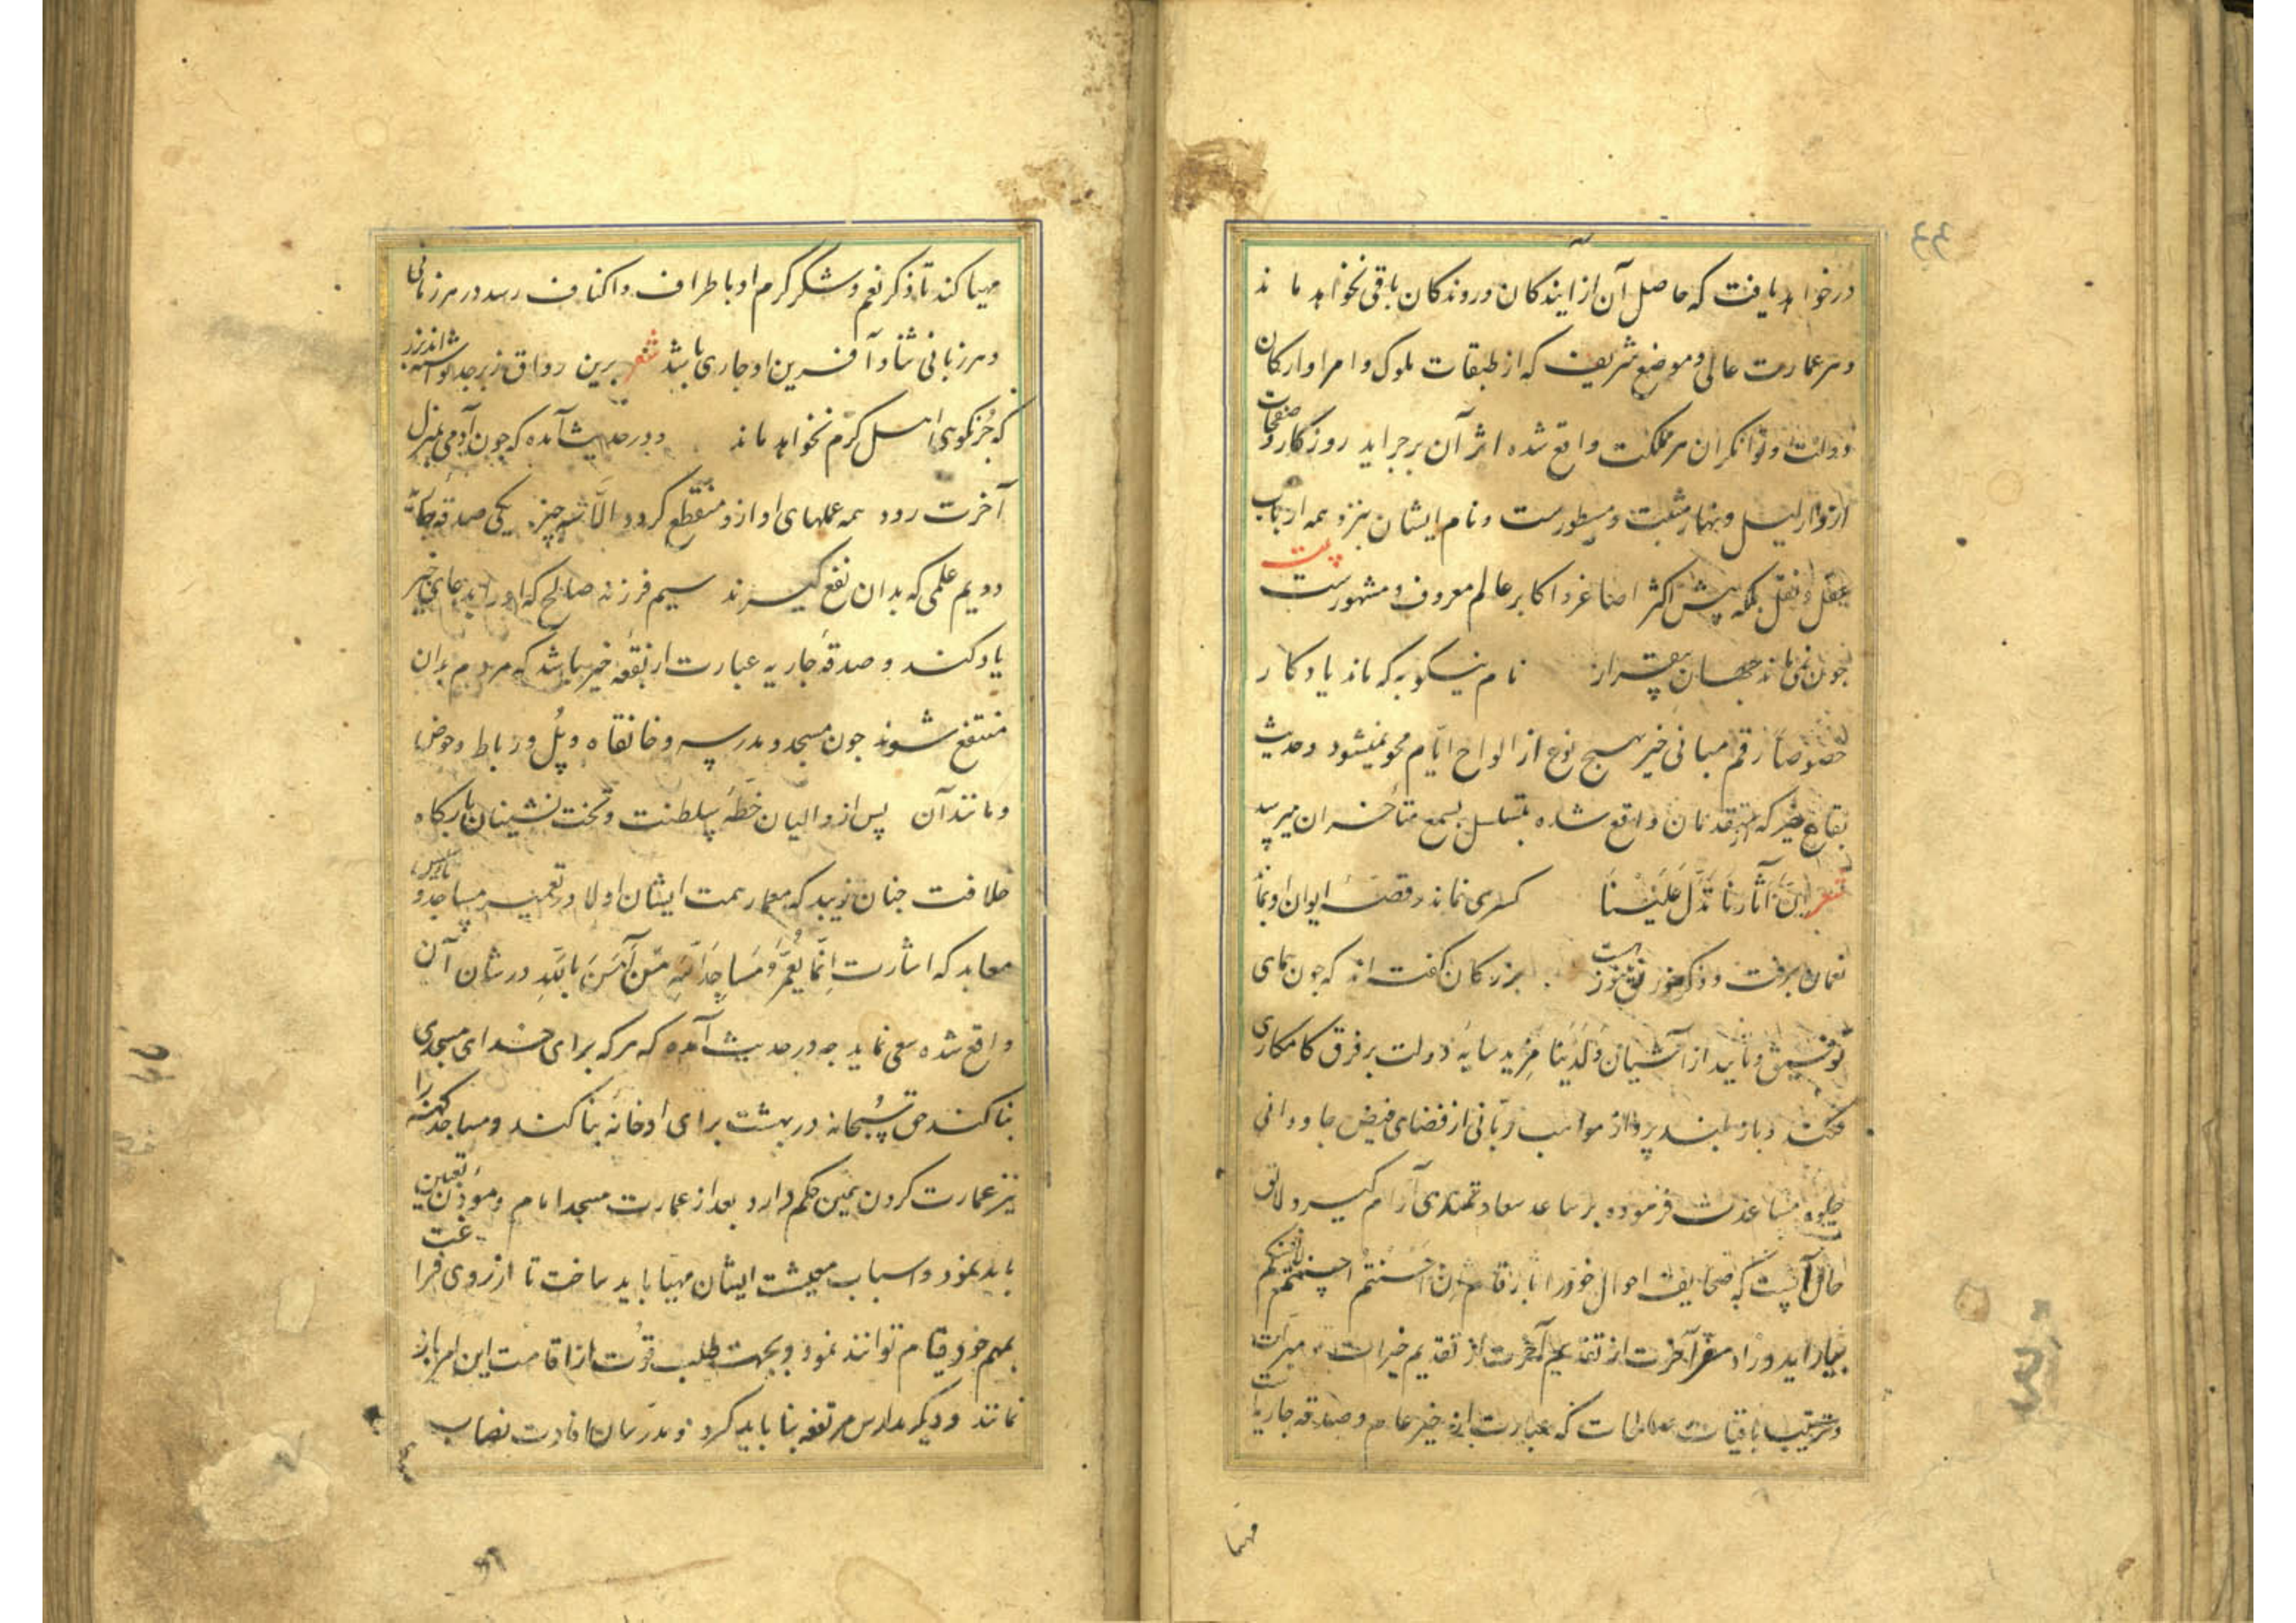 درخواهد یافت که حاصل آن از ایندکان و روندکان باقی نخواهد ماند
و هر عمارت عالی و موضع شریف که از طبقات ملوک و امرا و ارکان
دولت و توانکران هر مملکت واقع شده اثر آن بر جراید روزکار و صفحات
ادوار لیل و نهار مثبت و مسطورست و نام ایشان نزد همه ارباب
عقل و نقل بلکه پیش اکثر اصاغر و اکابر عالم معروف و مشهورست بیت
چون نمی ماند جهان برقرار نام نیکو به که ماند یادکار
خصوصا رقم مبانی خیر بهیچ نوع از الواح ایّام محو نمیشود و حدیث
بقاع خیر که متقدمان واقع شده بتسلسل بسمع متأخران میرسد
شعر انّ آثارنا تدلّ علینا کسری نماند و قصهٔ ایوان او بماند
نعمان برفت و ذکر خورنق هنوز هست بزرکان کفته اند که چون همای
توفیق و تأیید از آشیان ولدینا مزید سایهٔ دولت بر فرق کامکاری
فکند و باز بلند پرواز مواهب ربّانی از فضای فیض جاودانی
جلوه مساعدت فرموده بر ساعد سعادتمندی آرام کیرد لائق
حال آنست که صحایف احوال خود را بارقام ان احسنتم احسنتم لانفسکم
بیاراید و زاد سفر آخرت از تقدیم خیرات و مبرات
و ترتیب باقیات صالحات که عبارت از خیر عام و صدقه جاریه است
مهیا
مهیا کند تا ذکر نعم و شکر کرم او باطراف و اکناف رسد در هر زمانی
و هر زبانی ثنا و آفرین او جاری باشد شعر برین رواق زبرجد نوشته اند بزر
که جز نکویی اهل کرم نخواهد ماند و در حدیث آمده که چون آدمی بمنزل
آخرت رود همه عملهای او از و منقطع کردد الّا سه چیز یکی صدقهٔ جاریه
دویم علمی که بدان نفع کیرند سیم فرزند صالح که او را بدعای خیر
یاد کند و صدقهٔ جاریه عبارت از بقعه خیر باشد که مردم بدان
منتفع شوند چون مسجد و مدرسه و خانقاه و پُل و رباط و حوض
و مانند آن پس از والیان خطّهٔ سلطنت و تخت نشینان بارکاه
خلافت چنان زیبد که معمار همت ایشان اولا در تعمیر مساجد و
معابد که اشارت اِنّما یعمر مساجد اللّه من آمن باللّه در شان آن
واقع شده سعی نماید چه در حدیث آمده که هر که برای خدای مسجدی
بنا کند حق سبحانه در بهشت برای او خانه بنا کند و مساجد کهنه را
نیز عمارت کردن همین حکم دارد بعد از عمارت مسجد امام و مؤذن تعیین
باید نمود و اسباب معیشت ایشان مهیا باید ساخت تا از روی فراغت
بمهم خود قیام توانند نمود و بجهت طلب قوت از اقامت این امر باز
نمانند و دیکر مدارس مرتفعه بنا باید کرد و مدرسان افادت نصاب